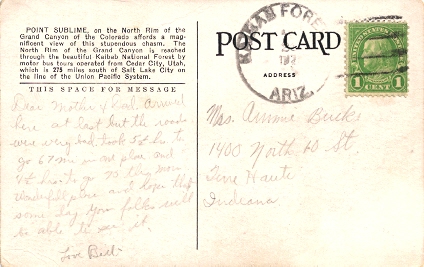 POINT SUBLIME, on the North Rim of the
Grand Canyon of the Colorado affords a mag-
nificent view of this stupendous chasm. The
North Rim of the Grand Canyon is reached
through the beautiful Kaibab National Forest by
motor bus tours operated from Cedar City, Utah,
which is 275 miles south of Salt Lake City on
the line of the Union Pacific System.
THIS SPACE FOR MESSAGE
Dear Mother & Arrived
here at last but the roads
were very bad, took 5½ hrs to
go 67 mi in one place and
hrs to go 75
Wonderful place and hope that
some day you folks will
be able to see it.
Love
POST CARD
ADDRESS
FOREST
ARIZ.
1 CENT 1
Mrs. Annie Bucks
1400 North 10 St
Terre Haute
Indiana